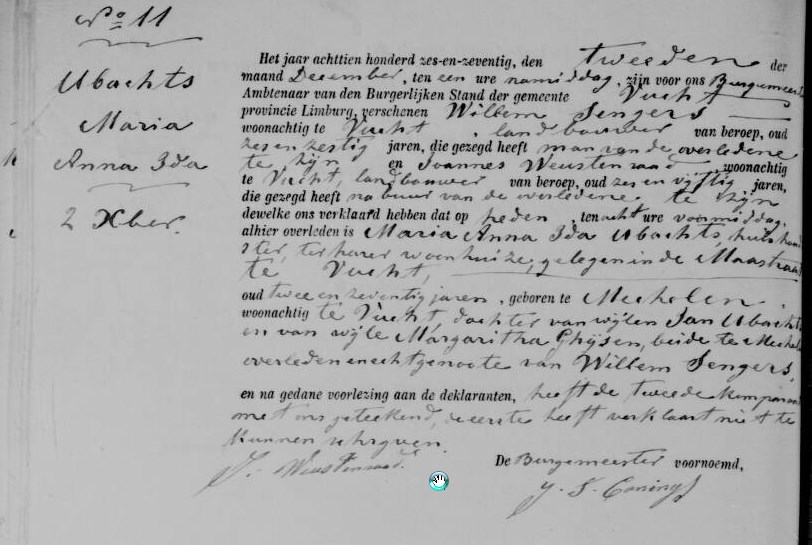 No 11
Ubachts
Maria
Anna Ida
2 Xber.
Het jaar achttien honderd zes-en-zeventig, den tweeden der
maand December, ten een ure namiddag, zijn voor ons Burgemeester
Ambtenaar van den Burgerlijken Stand der gemeente Vucht
provincie Limburg, verschenen Willem Sengers
woonachtig te Vucht, landbouwer van beroep, oud
zes en zestig jaren, die gezegd heeft man van de overledene
te zijn en Joannes Weustenraad, woonachtig
te Vucht, landbouwer van beroep, oud zes en vijftig jaren,
die gezegd heeft nabuur van de overledene te zijn
dewelke ons verklaard hebben dat op heden, ten acht ure voormiddag,
alhier overleden is Maria Anna Ida Ubachts, huishoud
ster, ter harer woonhuize, gelegen in de Maastraat
te Vucht,
oud twee en zeventig jaren, geboren te Mechelen,
woonachtig te Vucht, dochter van wijlen Jan Ubachts
en van wijle Margaritha Ghijsen, beide te Mechelen
overleden en echtgenoote van Willem Sengers,
en na gedane voorlezing aan de deklaranten, heeft de tweede komparant
met ons geteekend, de eerste heeft verklaart niet te
kunnen schrijven.
J. Weustenraad
De Burgemeester voornoemd,
J. S. Conings